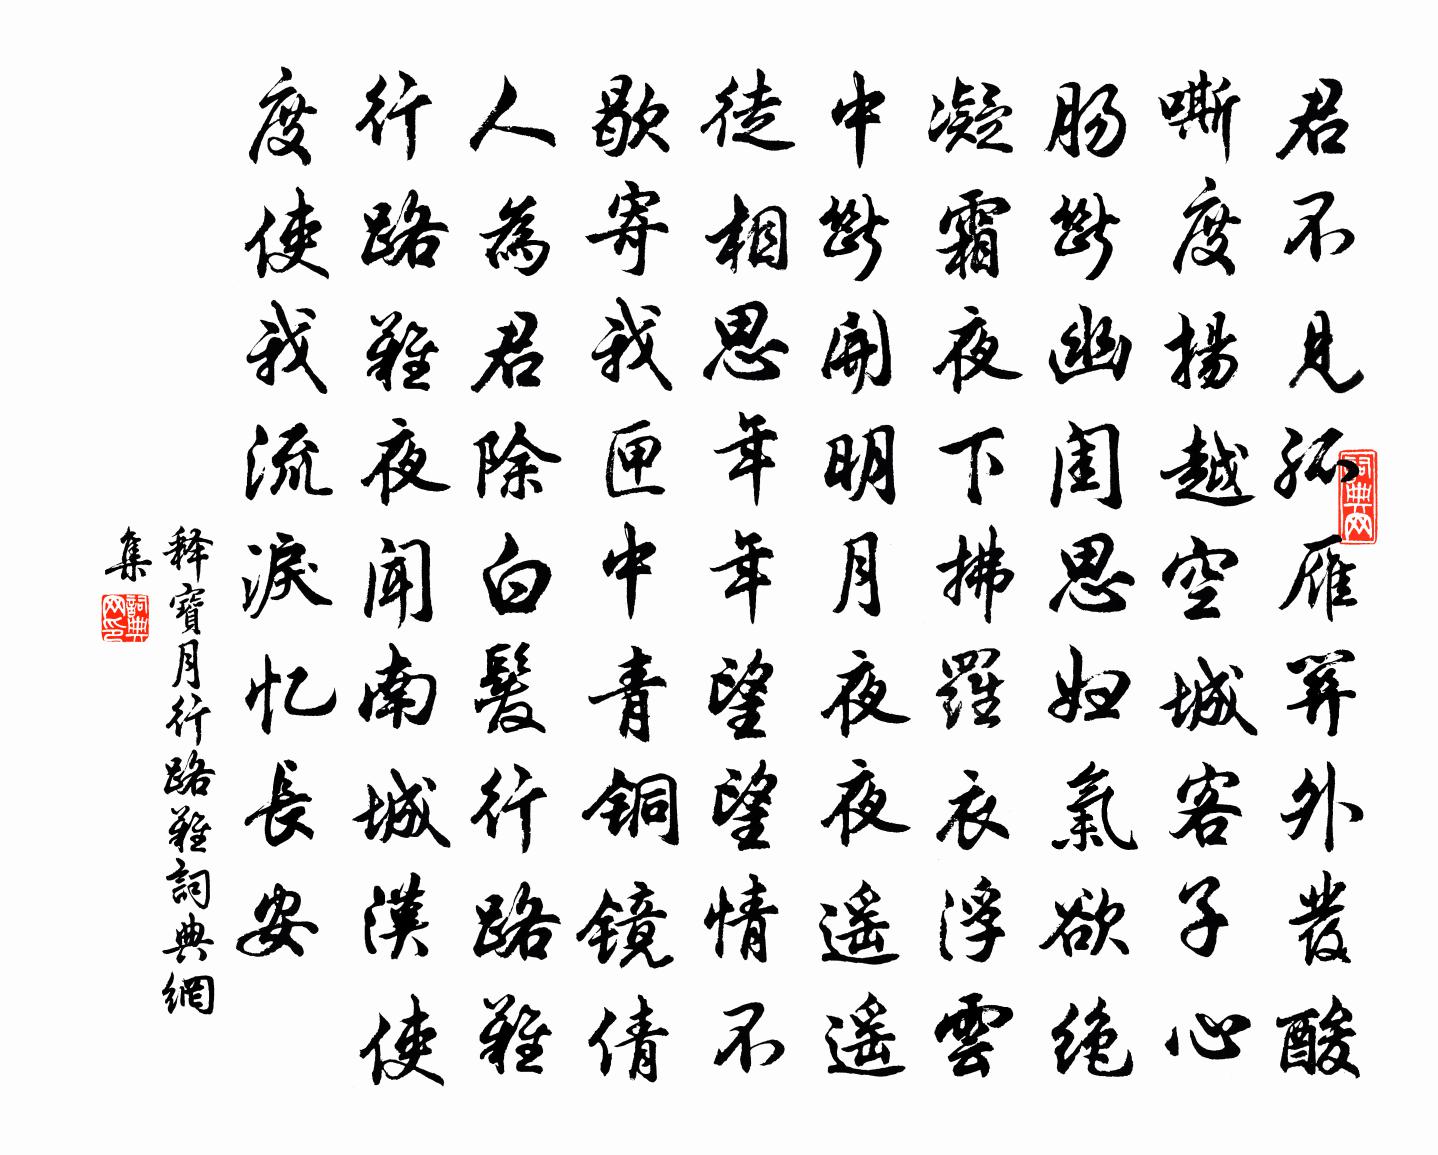 君不見孤雁關外發酸
嘶度揚越空城客子心
肠斷幽閨思婦氣欲絶
凝霜夜下拂羅衣浮雲
中斷開明月夜夜遥遥
徒相思年年望望情不
歇寄我匣中青铜镜倩
人為君除白髮行路難
行路難夜聞南城漢使
度使我流淚忆長安
释寶月行路難詞典網
集
詞典网
詞典网印